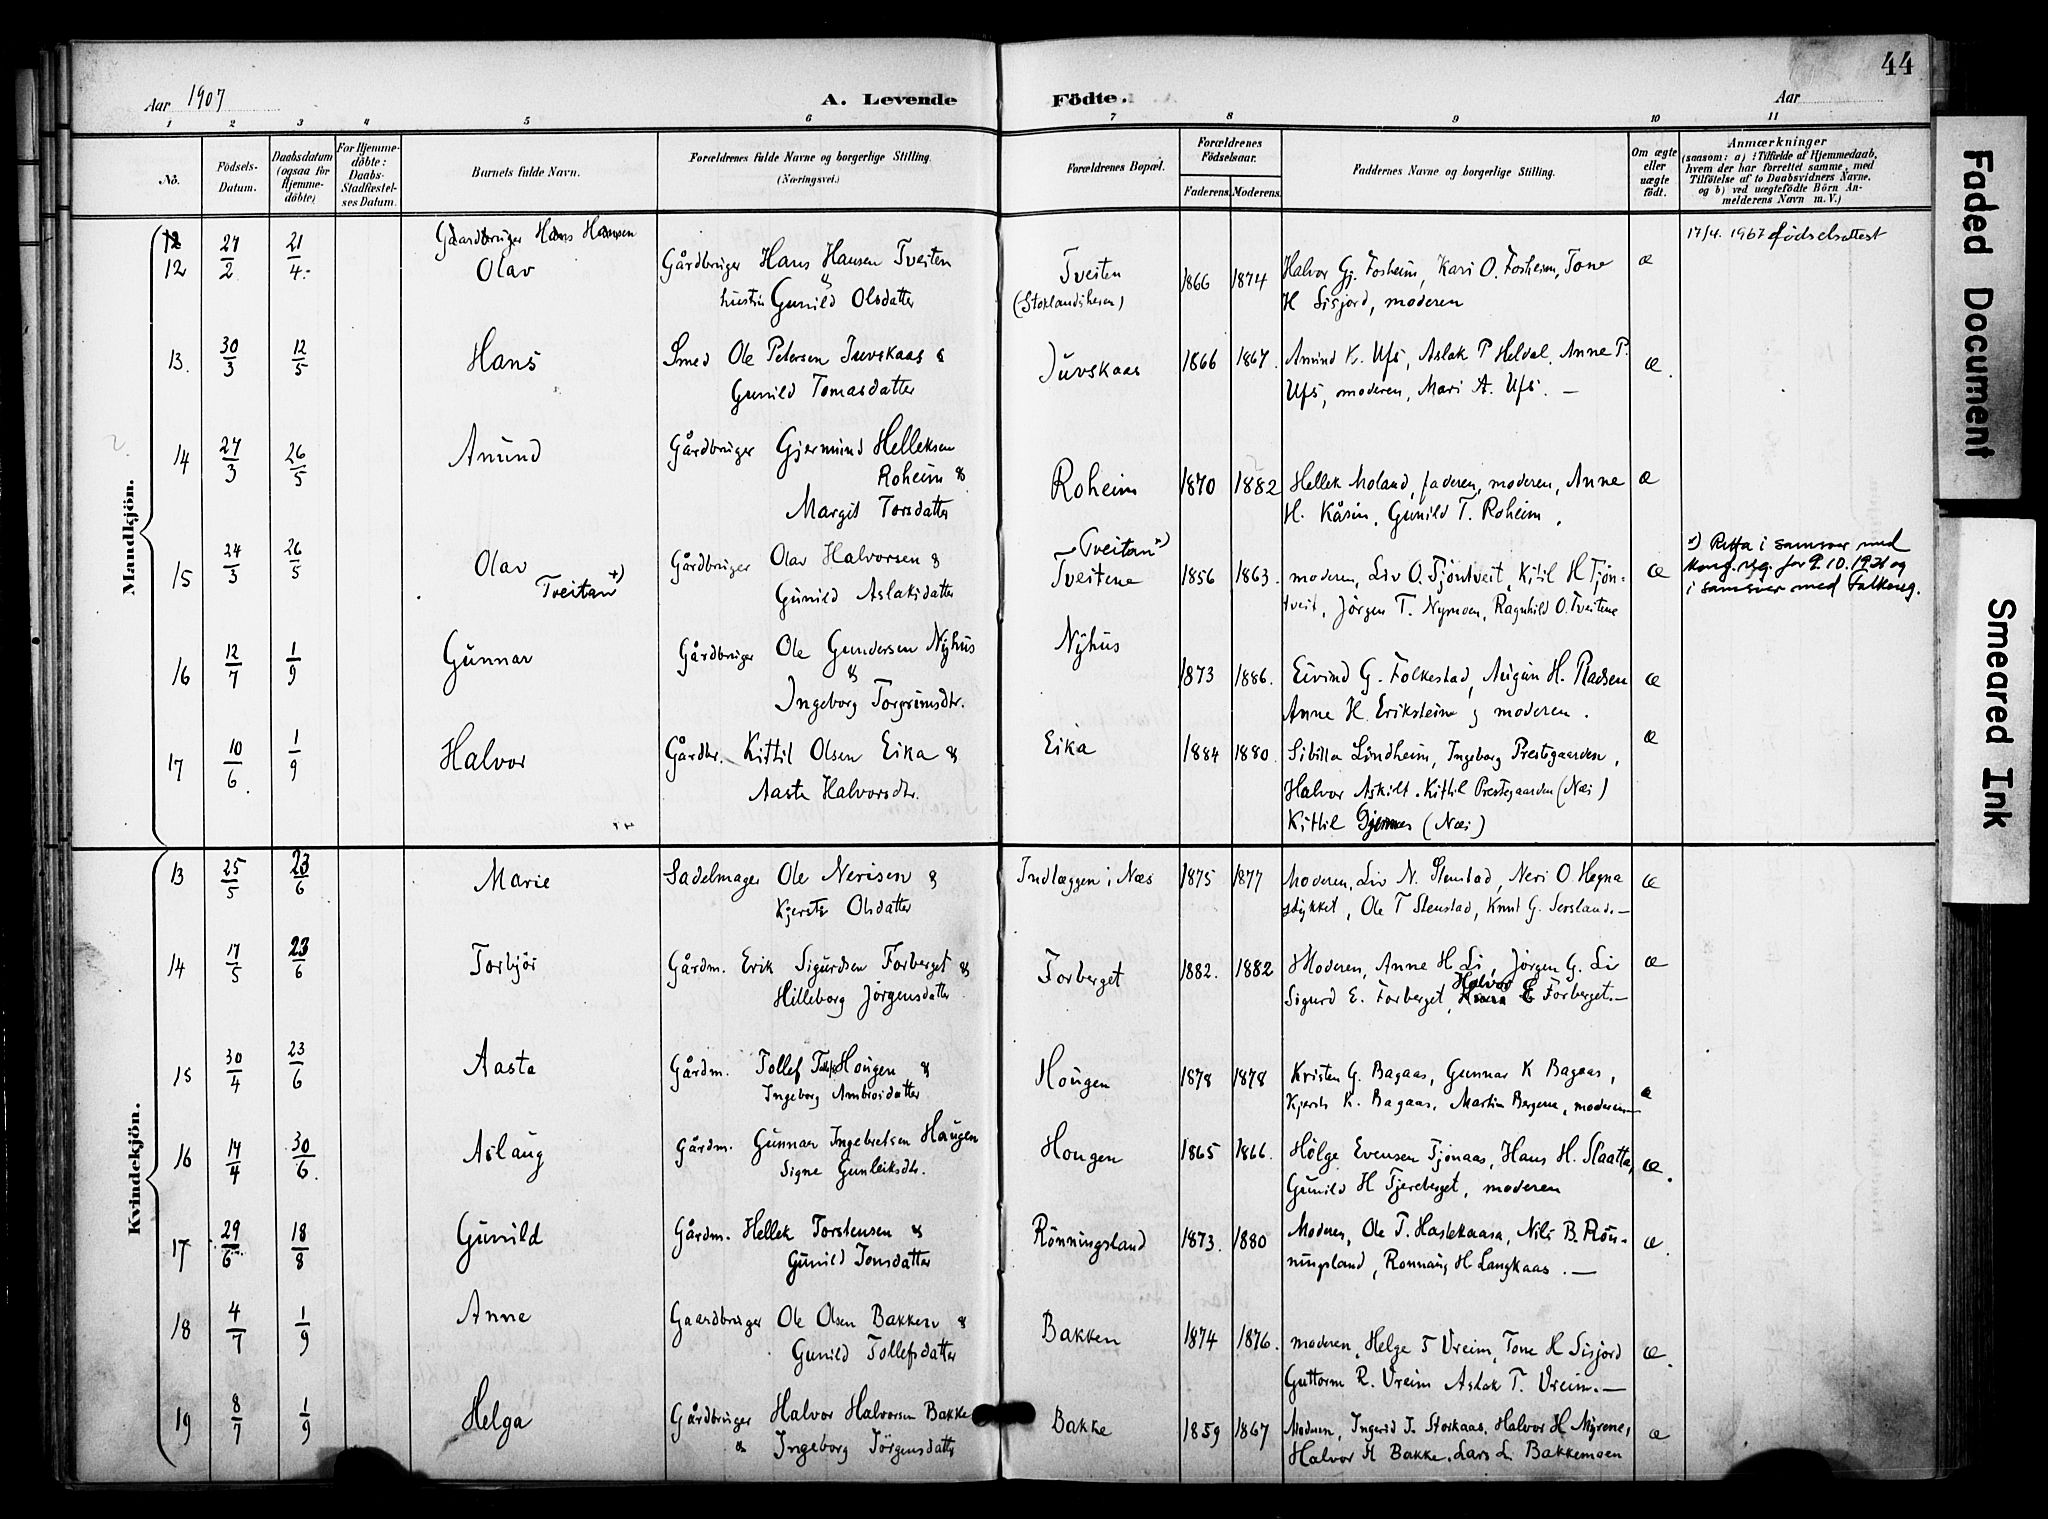 44
Aar 1907
A. Levende
Födte.
Aar
1 2 3 4 5 6 7 8 9 10 11
No.
Födsels-
Datum.
Daabsdatum
(ogsaa for
Hjemme-
döbte)
For Hjemme-
döbte:
Daabs-
Stadfæstel-
ses Datum.
Barnets fulde Navn.
Forældrenes fulde Navne og borgerlige Stilling.
(Næringsvei.)
Forældrenes Bopæl.
Forældrenes
Födselsaar.
Faderens. Moderens.
Faddernes Navne og borgerlige Stilling.
Om ægte
eller
uægte
födt.
Anmærkninger
(saasom: a) i Tilfælde af Hjemmedaab,
hvem der har forrettet samme, med
Tilföielse af to Daabsvidners Navne,
og b) ved uægtefödte Börn An-
melderens Navn m. V.)
Mandkjön.
12 Gaardbruger Hans Hansen
12 27/2 21/4 Olav Gårdbruger Hans Hansen Tveiten & Tveiten 1866 1874 Halvor Gj. Fosheim, Kari O. Fosheim, Tone æ 17/4. 1967 fødselsattest
hustru Gunild Olsdatter (Stoklandsheien) H Sisjord, moderen
13. 30/3 12/5 Hans Smed Ole Petersen Juvskaas & Juvskaas 1866 1867. Amund K. Ufs, Aslak P Heldal, Anne P. æ.
Gunild Tomasdatter Ufs, moderen, Mari A. Ufs. —
14 27/3 26/5 Amund Gårdbruger Gjermund Helleksen
Roheim & Roheim 1870 1882 Hellek Moland, faderen, moderen, Anne æ
Margit Torsdatter H. Kåsin, Gunild T. Roheim.
15 24/3 26/5 Olav Gårdbruger Olav Halvorsen & Tveitan +)
Tveitan +) Gunild Aslaksdatter Tveitene 1856 1863. moderen, Liv O. Tjöntveit, Kitil H Tjön- æ
tveit, Jörgen T. Nymoen, Ragnhild O. Tveitene
+) Retta i samsvar med
kong. res. for 9.10.1921 og
i samsvar med folkereg.
16 12/7 1/9 Gunnar Gårdbruger Ole Gundersen Nyhus & Nyhus 1873 1886. Eivind G. Folkestad, Augun H. æ
Ingeborg Torgrimsdtr. Anne H. Eriksteine, moderen.
17 10/6 1/9 Halvor Gårdbr. Kittil Olsen Eika & Eika 1884 1880. Sibilla Lindheim, Ingeborg Prestegaarden, æ
Aaste Halvorsdtr. Halvor Askilt. Kittil Prestegaarden (Næs)
Kittil (Næs)
Kvindekjön.
13 25/5 23/6 Marie Sadelmager Ole Nerisen & Indlæggen i Næs 1875 1877 Moderen, Liv N. Stenstad, Neri O. Hegna æ
Kjersti Olsdatter stykket, Ole T Stenstad, Knut G. Sersland.—
14 17/5 23/6 Torbjör Gårdm. Erik Sigurdsen Forberget & Forberget 1882. 1882 Moderen, Anne H Li, Jörgen G. Li æ
Hilleborg Jörgensdatter Sigurd E. Forberget, Halvor E Forberget.—
15 30/4 23/6 Aasta Gårdm. Tollef Tollefs. Hougen & Hougen 1878 1878 Kristen G. Bagaas, Gunnar K Bagaas, æ
Ingeborg Ambrosdatter Kjersti K. Bagaas, Martin Bergene, moderen—
16 14/4 30/6 Aslaug Gårdm. Gunnar Ingebretsen Haugen Hougen 1865 1866. Hölge Evensen Tjönaas, Hans H. Slaatta, æ.
Signe Gunleiksdtr. Gunild H Tjereberget, moderen
17 29/6 18/8 Gunild Gårdm. Hellek Torstensen & Rönningsland 1873. 1880 Moderen, Ole T. Haslekaasa, Nils B. Rön- æ.
Gunild Jonsdatter ningsland, Ronnaug H Langkaas. —
18 4/7 1/9 Anne Gaardbruger Ole Olsen Bakken & Bakken 1874 1876. moderen, Helge T Vreim, Tone H Sisjord æ.
Gunild Tollefsdatter Guttorm R. Vreim Aslak T. Vreim.—
19 8/7 1/9 Helga Gårdbruger Halvor Halvorsen Bakke Bakke 1859 1867 Moderen, Ingerid J. Storkaas, Halvor H Myrene, æ
& Ingeborg Jörgensdatter Halvor H Bakke, Lars L. Bakkemoen
Faded Document
Smeared Ink